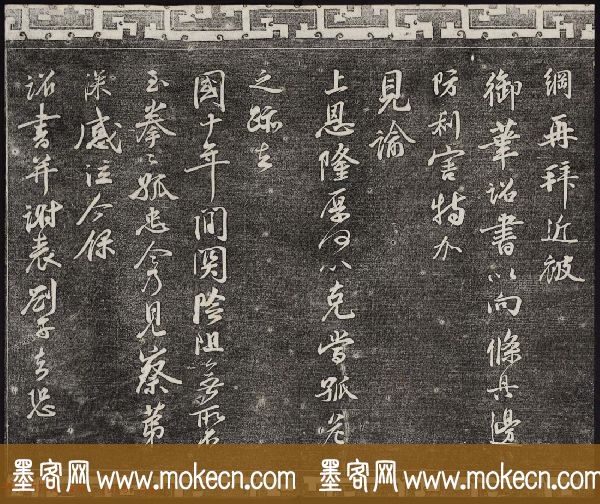 綱再拜近被
御華詔書以向條具邊
防利害特加
見諭
上恩隆厚何以克當孤
之跡去
國十年間關險阻無所
玉拳〻孤忠今見
深感泣今録
詔書并謝表劄子去恐
墨客网 www.mokecn.com 墨客网 www.mokecn.com